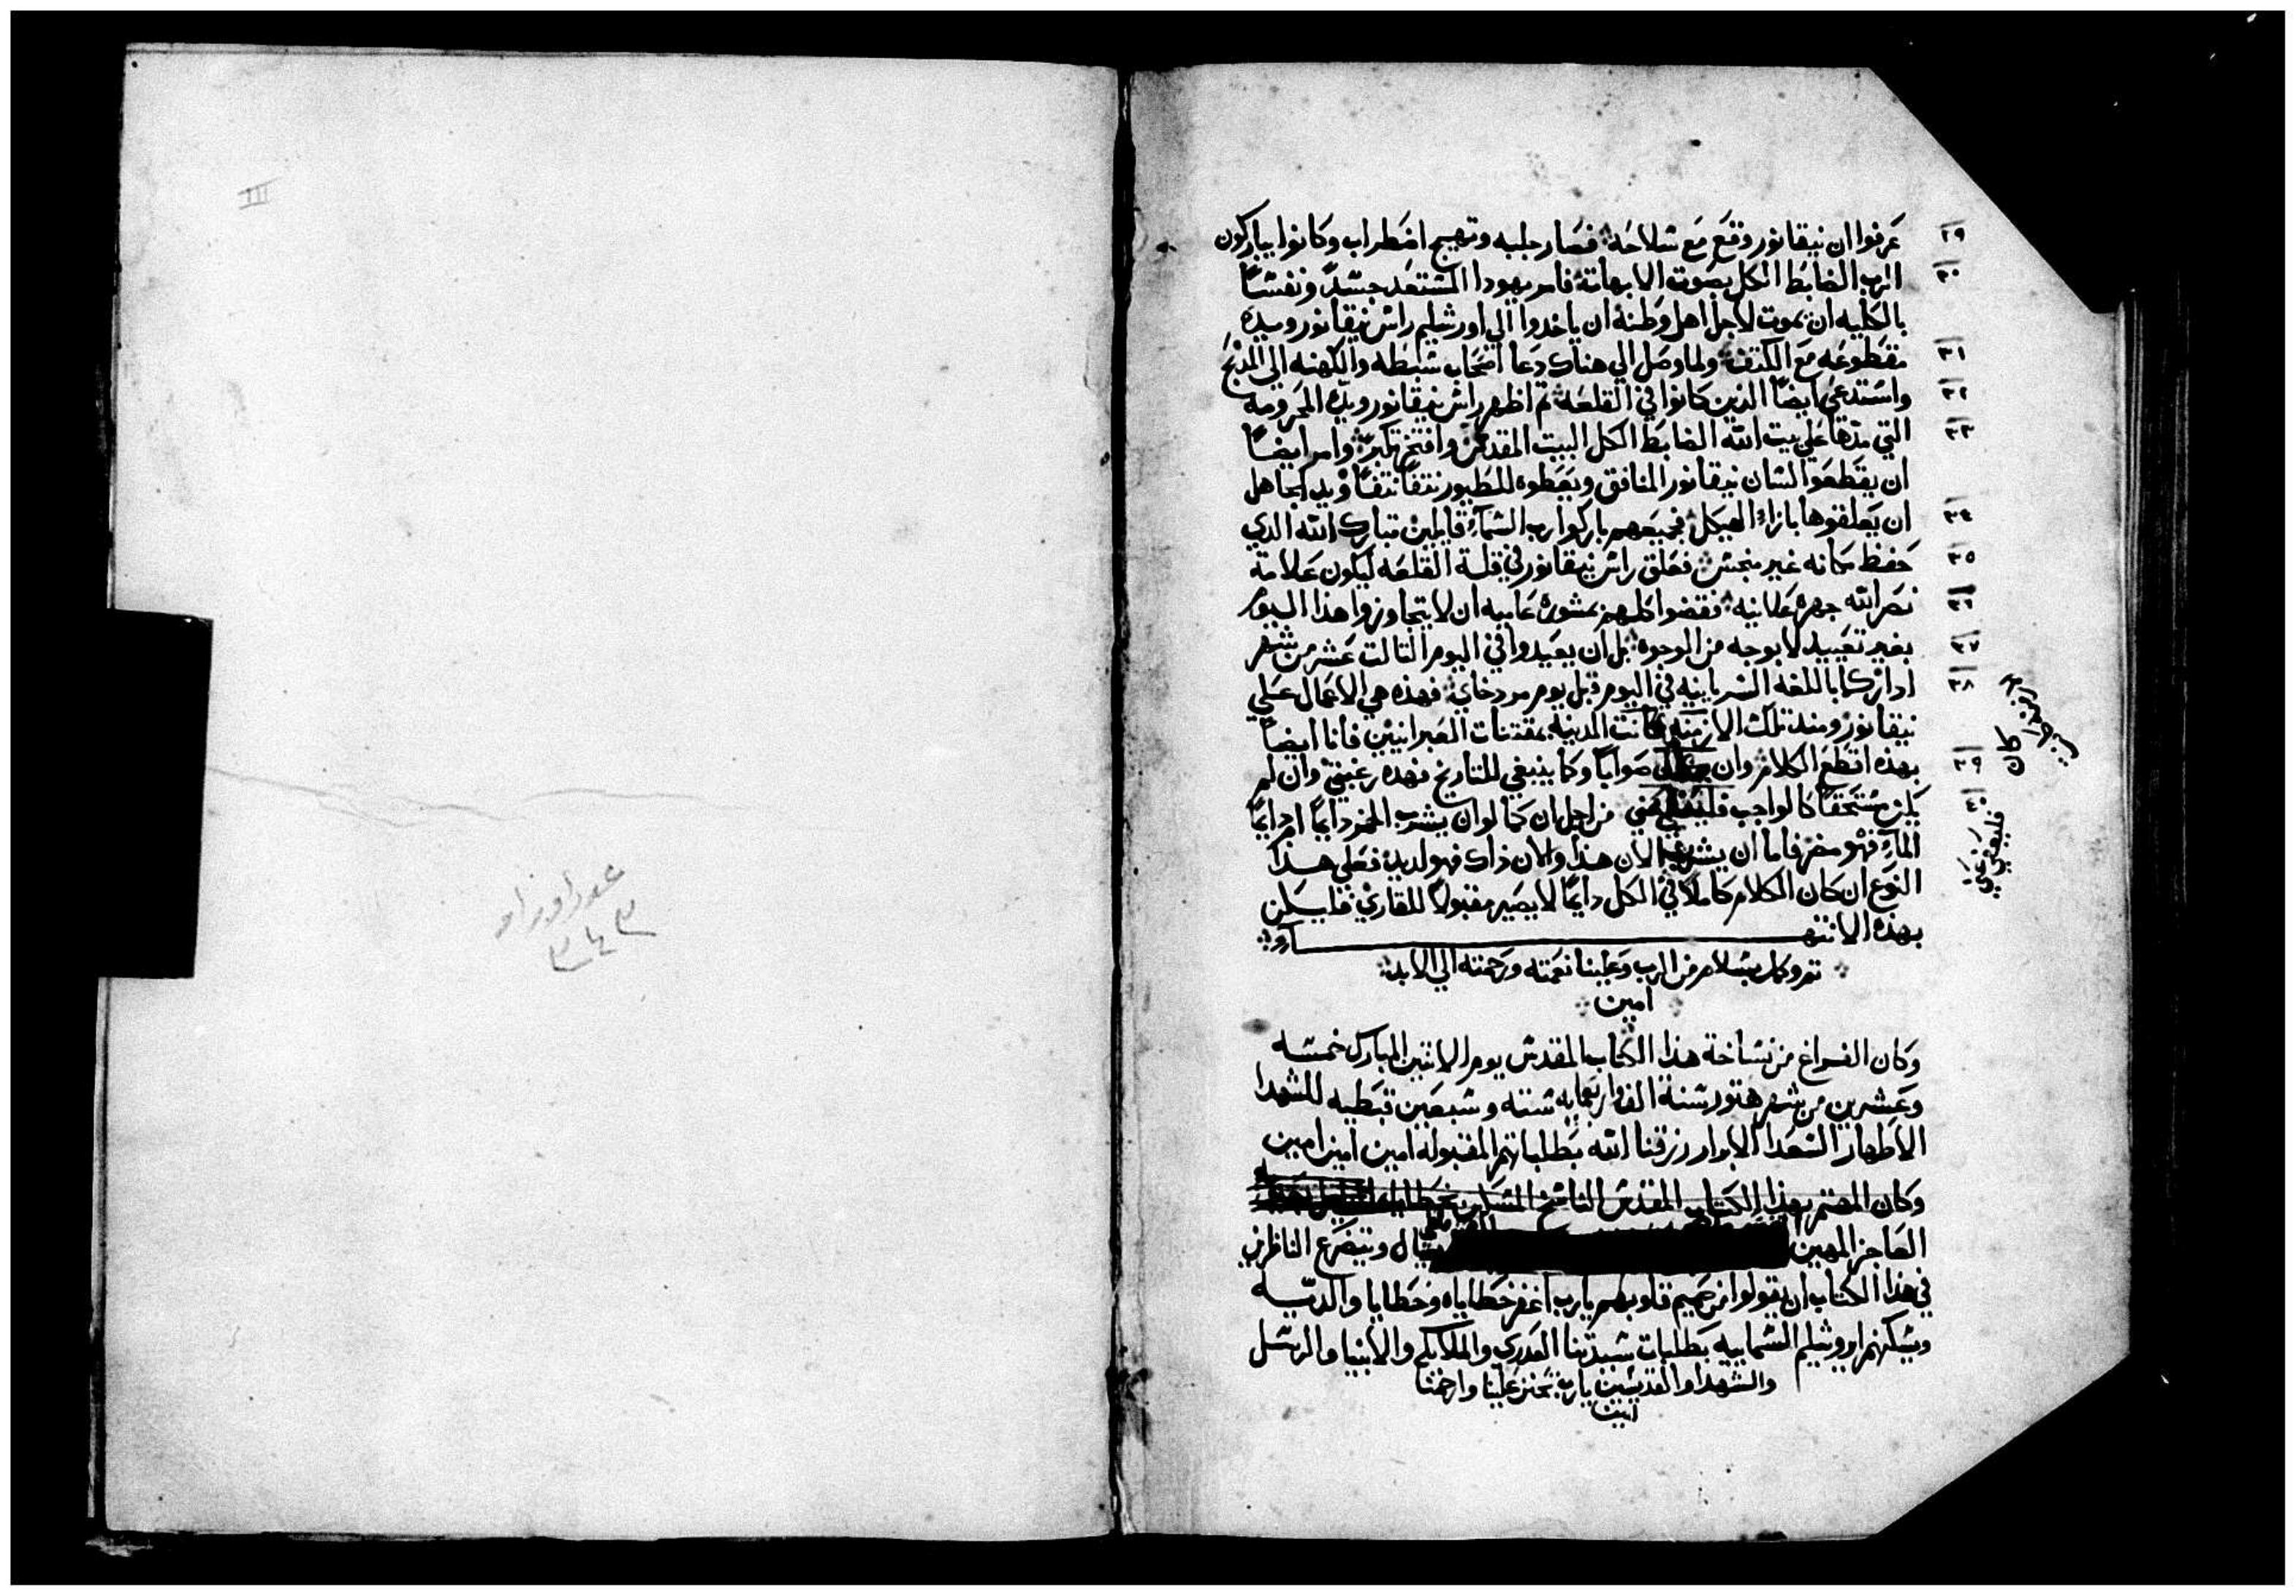 ٢٩ عرفوا ان نيقانور وقع مع سلاحه فصار جلبه وتهيج اضطراب وكانوا يباركون
٣٠ الرب الضابط الكل بصوت الابهاته فامر يهودا المستعد جسداً ونفساً
بالكليه ان يموت لاجل اهل وطنه ان ياخدوا الي اورشليم راس نيقانور ويده
٣١ مقطوعه مع الكتف ولما وصل الي هناك دعا اصحاب سبطه والكهنه الي المذبح
٣٢ واستدعي ايضاً الذين كانوا في القلعه تم اظهر راس نيقانور ويده المجرومه
٣٣ التي مدها علي بيت الله الضابط الكل البيت المقدس وافتخر بتكبر وامر ايضاً
ان يقطعوا لسان نيقانور المنافق ويعطوه للطيور نتفاً نتفاً ويد الجاهل
٣٤ ان يعلقوها بازاء الهيكل فجميعهم باركوا رب السماء قايلين تبارك الله الدي
٣٥ حفظ مكانه غير منجس فعلق راس نيقانور في قلة القلعه ليكون علامة
٣٦ نصر الله جهره علانيه فقضوا كلهم بمشوره عاميه ان لا يتجاوزوا هذا اليوم
٣٧ بغير تعييد لا بوجه من الوجوه بل ان يعيدوا في اليوم التالت عشر من شهر
٣٨ ادار كما باللغه السريانيه في اليوم قبل يوم مردخاي فهذه هي الاعمال علي
نيقانور ومند تلك الازمنه كانت المدينه بمقتنات العبرانيين فانا ايضاً
٣٩ بهذه اقطع الكلام وان صواباً وكما ينبغي للتاريخ فهده رغبتي وان لم
٤٠ يكن مستحقاً كالواجب من اجل ان كما لو ان يشرب الخمر دايماً ام دايماً
الماء فهو مضر فاما ان يشرب الان هذا والان ذاك فهو لديد فعلي هذا
النوع ان كان الكلام كاملاً في الكل دايماً لا يصير مقبولاً للقاري فليكن
بهذه الانتهاء
تم وكمل بسلام من الرب وعلينا نعمته ورحمته الي الابد
امين
وكان الفراغ من نساخة هذا الكتاب المقدس يوم الاتنين المبارك خمسه
وعشرين من شهر هتور سنة الف واربعمايه سته وسبعين قبطيه للشهدا
الاطهار السعدا الابرار رزقنا الله بطلباتهم المقبوله امين امين امين
وكان المهتم بهذا الكتاب المقدس الناسخ المسكين
العاجز المهين يسال ويتضرع الناظرين
في هذا الكتاب ان يقولوا من صميم قلوبهم يارب اغفر خطاياه وخطايا والديه
ويسكنهم اوروشليم السمايية بطلبات سيدتنا العدري والملايكه والانبيا والرسل
والشهدا والقديسين يارب تحنن علينا وارحمنا
امين
III
٣٤٣